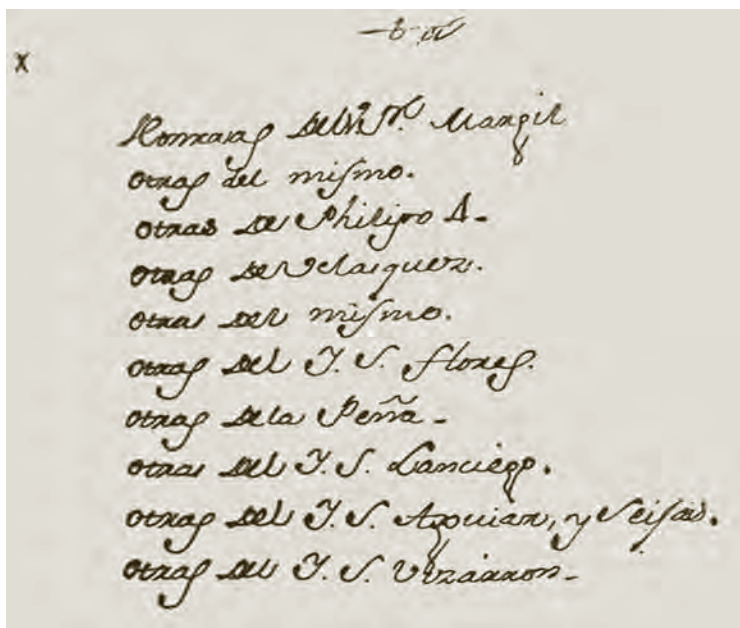 x
Honras del V. P. Margil
otras del mismo.
otras de Philipo
otras de Velasquez.
otras del mismo.
otras del Y. S. flores.
otras dela Peña -
otras del Y. S. Lanciego.
otras del Y. S. y Seisas.
otras del Y. S. Vizarron -